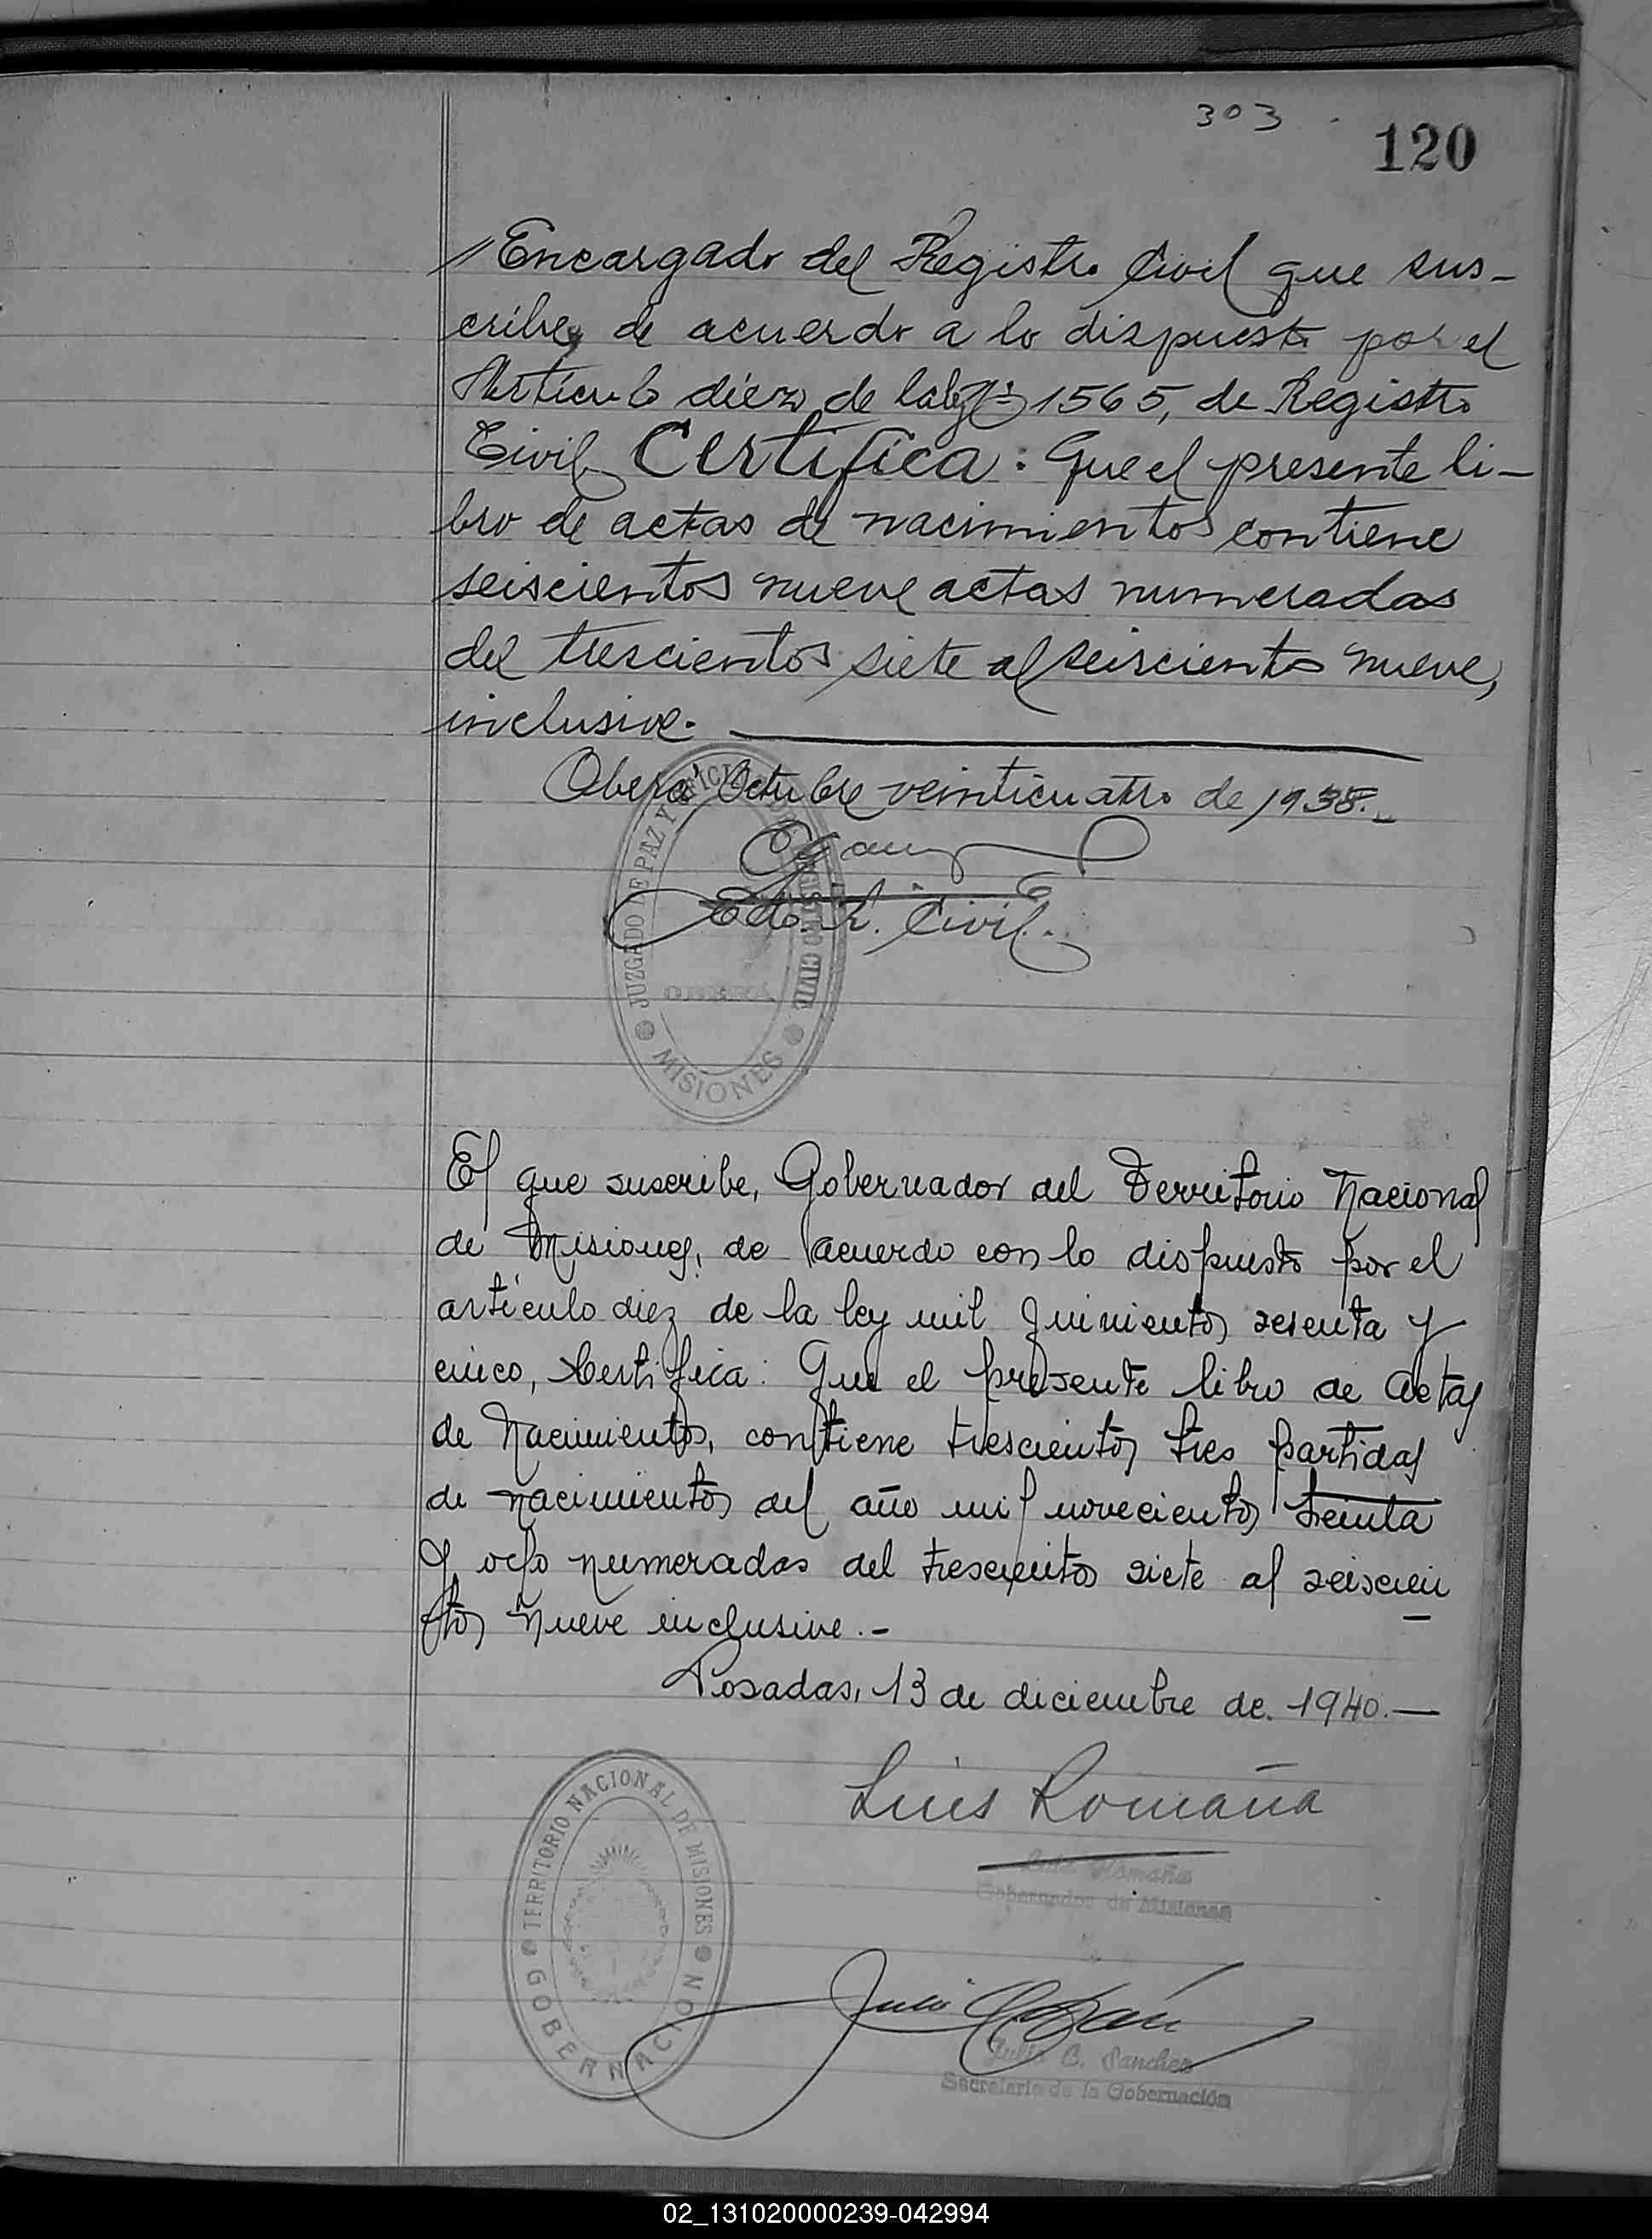 303
120
Encargado del Registro Civil que sus-
cribe, de acuerdo a lo dispuesto por el
Artículo diez de la ley Nº 1565, de Registro
Civil Certifica: Que el presente li-
bro de actas de nacimientos contiene
seiscientos nueve actas numeradas
del trescientos siete al seiscientos nueve,
inclusive.
Oberá Octubre veinticuatro de 1938.
Edo. R. Civil.
JUZGADO DE PAZ Y OFICINA DEL REGISTRO CIVIL
OBERÁ
MISIONES
El que suscribe, Gobernador del Territorio Nacional
de Misiones, de acuerdo con lo dispuesto por el
artículo diez de la ley mil quinientos sesenta y
cinco, Certifica: Que el presente libro de Actas
de Nacimientos, contiene trescientos tres partidas
de nacimientos del año mil novecientos treinta
y ocho numeradas del trescientos siete al seiscien
tos nueve inclusive.-
Posadas, 13 de diciembre de 1940.—
Luis Romaña
Luis Romaña
Gobernador de Misiones
TERRITORIO NACIONAL DE MISIONES
GOBERNACION
Julio
Julio C. Sanchez
Secretario de la Gobernación
02_131020000239-042994